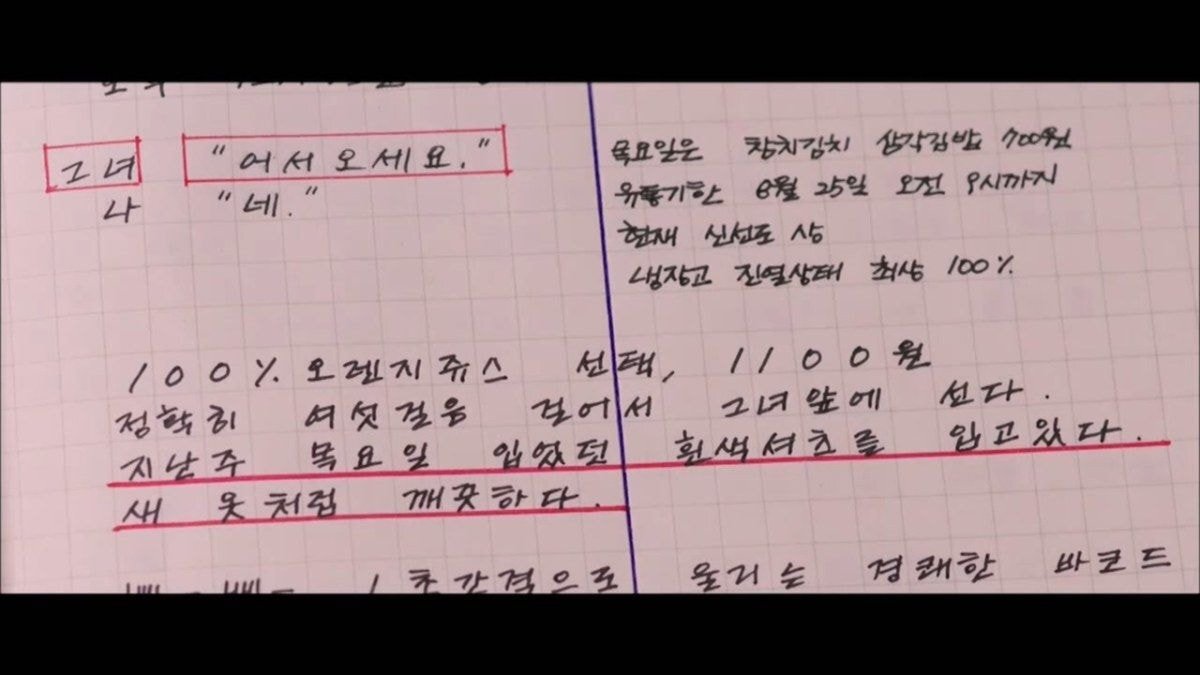 그녀 "어서오세요."
나 "네."
목요일은 참치김치 삼각김밥 700원
유통기한 8월 25일 오전 9시까지
현재 신선도 상
냉장고 진열상태 최상 100%
100% 오렌지쥬스 선택, 1100원
정확히 여섯걸음 걸어서 그녀앞에 선다.
지난주 목요일 입었던 흰색셔츠를 입고있다.
새 옷처럼 깨끗하다.
1초간격으로 울리는 경쾌한 바코드